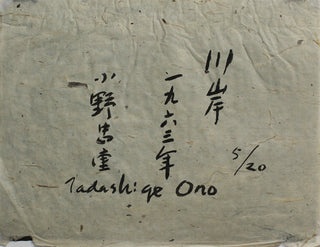 川岸
一九六三年
小野忠重
5/20
Tadashige Ono